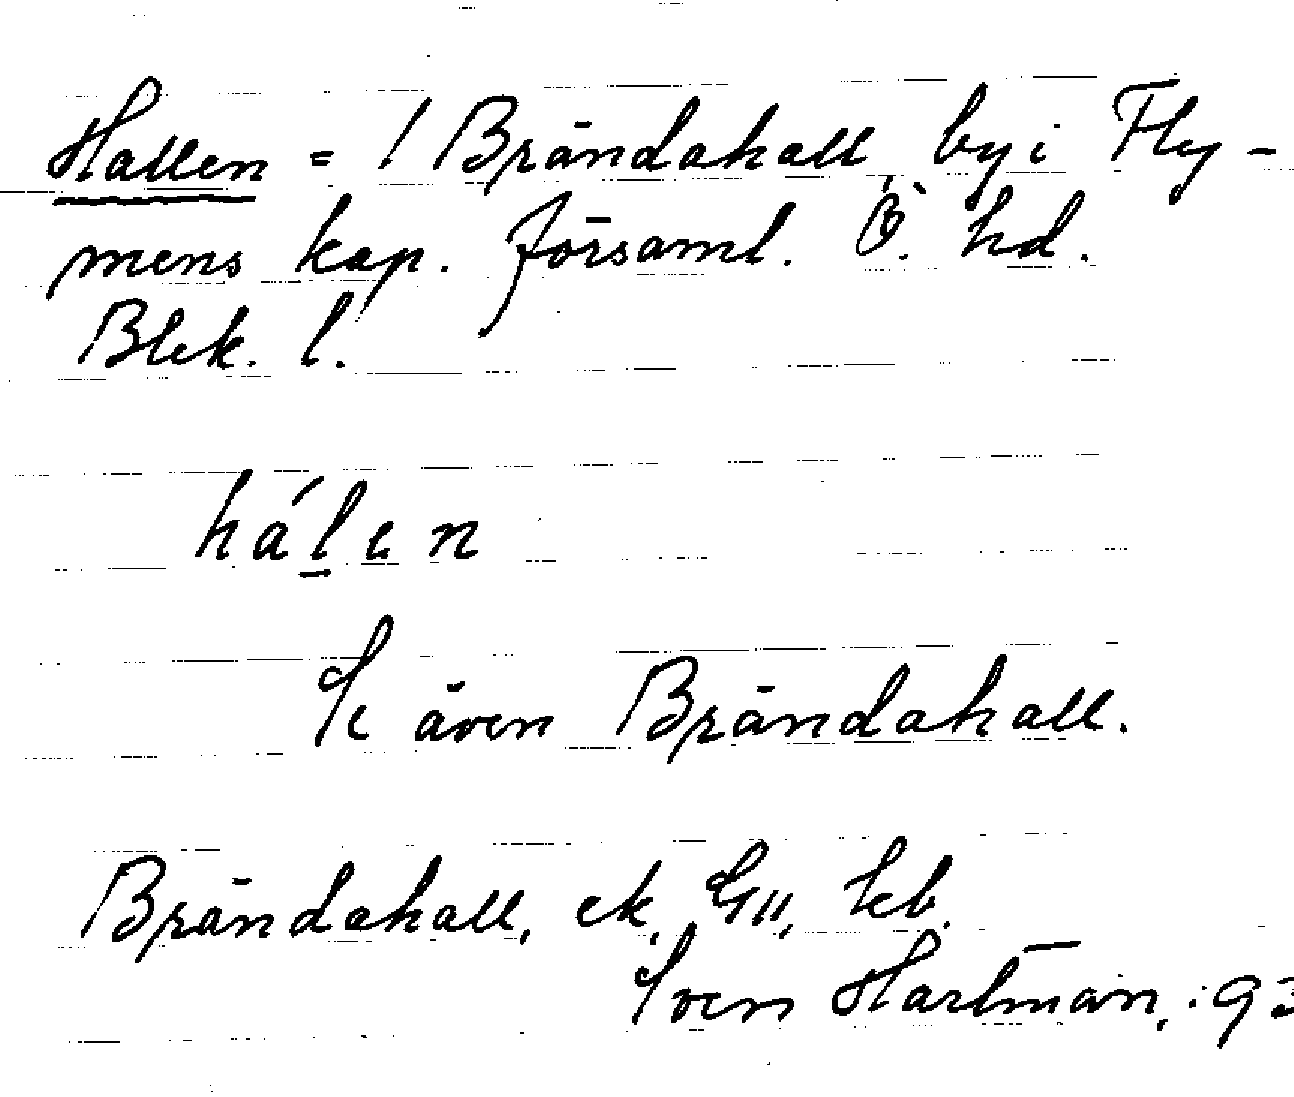 Hallen = / Brändahall, by i Fly-
mens kap. församl. Ö. hd.
Blek. l.
hálen
Se även Brändahall.
Brändahall, ek. GII, lcb.
Sven Hartman,